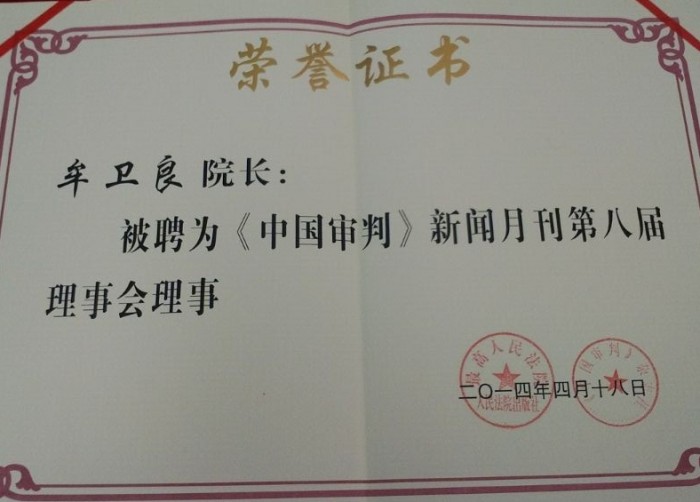 荣誉证书
牟卫良院长：
被聘为《中国审判》新闻月刊第八届
理事会理事
最高人民法院
人民法院出版社
二〇一四年四月十八日